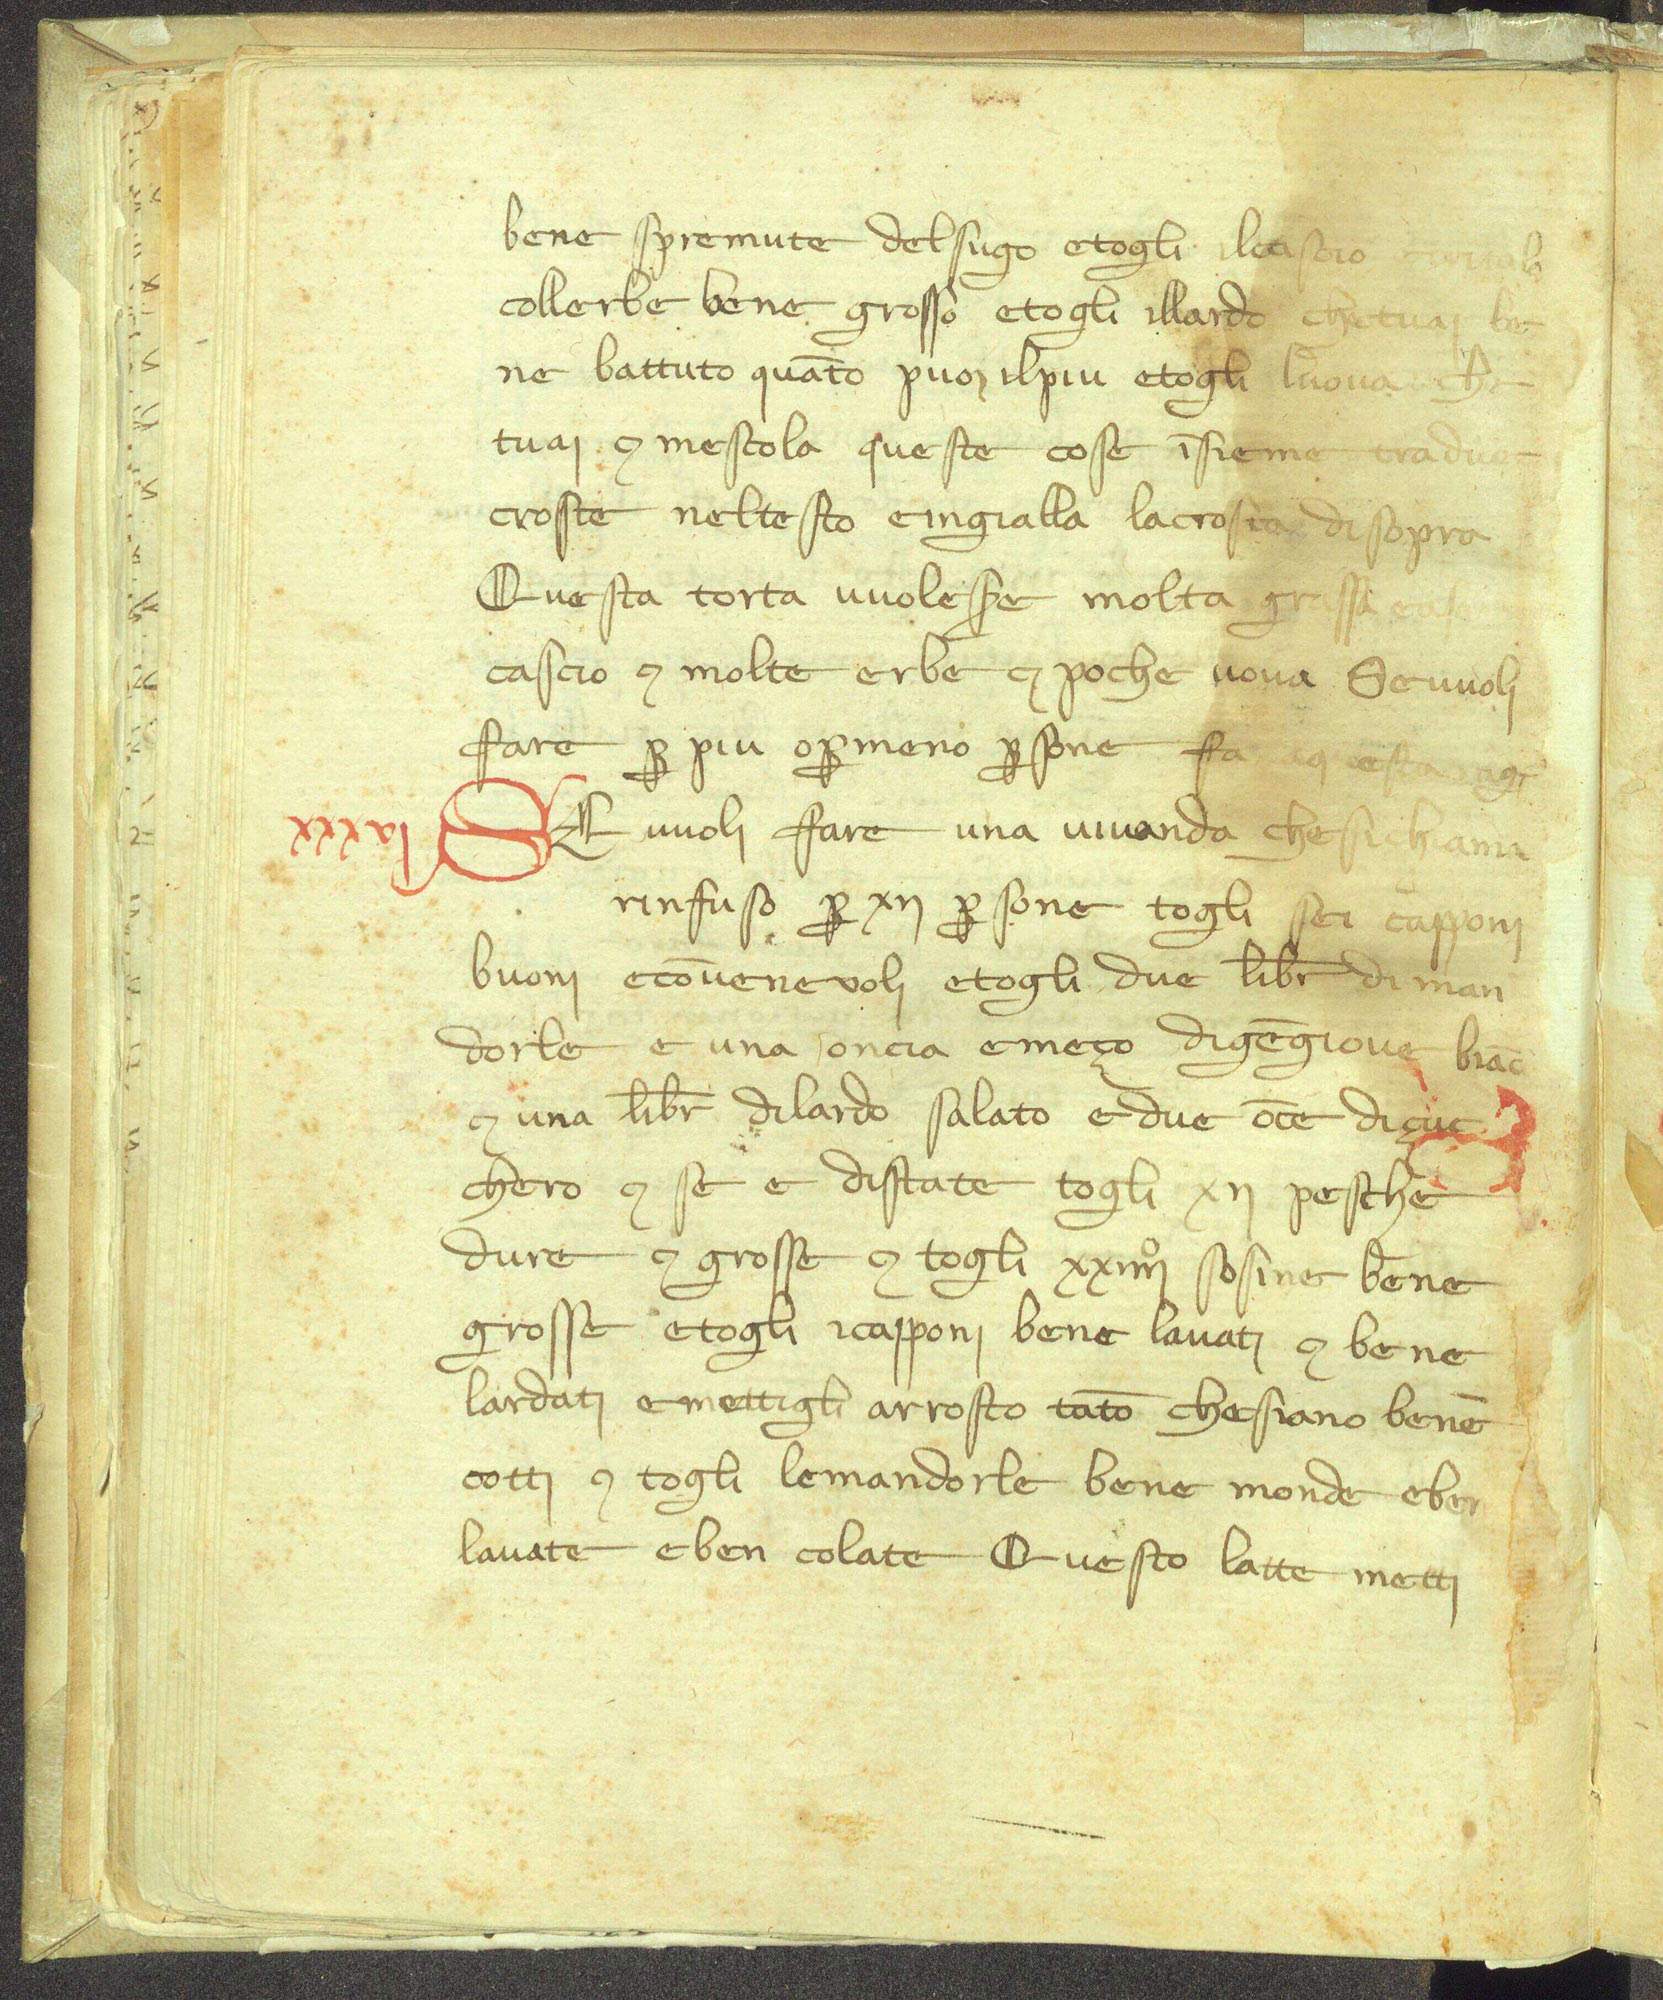 bene spremute delsugo etogli ilcascio
collerbe bene grosso etogli illardo chetuaj be
ne battuto quāto puoj ilpiu etogli luoua che
tuaj ⁊ mescola queste cose īsieme tradue
croste neltesto eingialla lacrosta disopra
Questa torta vuoleſſe͛ molta grassa
cascio ⁊ molte erbe ⁊ poche uoua Seuuoli
fare ꝑ piu oꝑmeno ꝑsone fa aq̄esta rag
SE uuoli fare una uiuanda chesichiama
lxxxx
rinfuso ꝑ xij ꝑsone togli sei capponj
buonj ecōueneuolj etogli due libr̄ diman
dorle e una oncia emeço digēgioue biāc
⁊ una libr̄ dilardo salato edue oc̄e diçuc
chero ⁊ se e distate togli xij pesche
dure ⁊ grosse ⁊ togli xxiiijº sosine bene
grosse etogli icapponj bene lauatj ⁊ bene
lardatj emettigli arrosto tāto chesiano benē
cottj ⁊ togli lemandorle bene monde eben
lauate eben colate Questo latte mettj